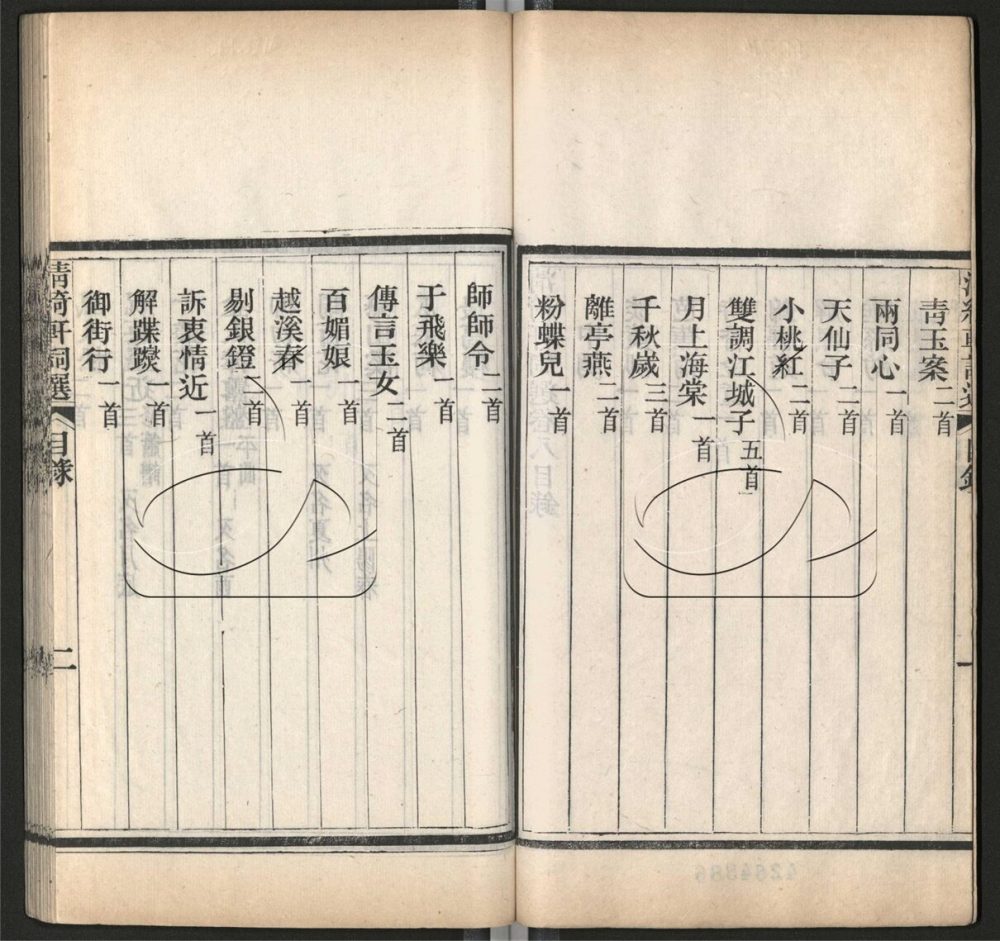 青玉案二首
兩同心一首
天仙子二首
小桃紅二首
雙調江城子五首
月上海棠一首
千秋歲三首
離亭燕二首
粉蝶兒一首
師師令二首
于飛樂一首
傳言玉女二首
百媚娘一首
越溪春一首
剔銀鐙一首
訴衷情近一首
解蹀躞一首
御街行一首
清綺軒詞選 目錄 二